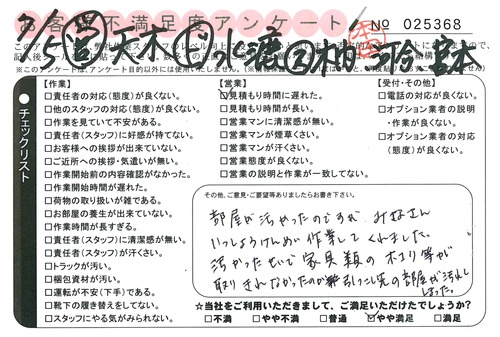 お客様不満足度アンケート
No 025368
チェックリスト
【作業】
□責任者の対応(態度)が良くない。
□他のスタッフの対応(態度)が良くない。
□作業を見ていて不安がある。
□責任者(スタッフ)に好感が持てない。
□お客様への挨拶が出来ていない。
□ご近所への挨拶・気遣いが無い。
□作業開始前の内容確認がなかった。
□作業開始時間が遅れた。
□荷物の取り扱いが雑である。
□お部屋の養生が出来ていない。
□作業時間が長すぎる。
□責任者(スタッフ)に清潔感が無い。
□責任者(スタッフ)が汗くさい。
□トラックが汚い。
□梱包資材が汚い。
□運転が不安(下手)である。
□靴下の履き替えをしてない。
□スタッフにやる気がみられない。
【営業】
☑見積もり時間に遅れた。
□見積もり時間が長い。
□営業マンに清潔感が無い。
□営業マンが煙草くさい。
□営業マンが汗くさい。
□営業態度が良くない。
□営業の説明と作業が一致してない。
【受付・その他】
□電話の対応が良くない。
□オプション業者の説明
・作業が良くない。
□オプション業者の対応
(態度)が良くない。
その他、ご意見・ご要望等ありましたらお書き下さい。
部屋が汚かったのですが みなさん
いっしょうけんめい作業してくれました。
汚かったせいで家具類のホコリ等が
取りきれなかったのが 引っこし先の部屋が汚れて
しまった。
☆当社をご利用いただきまして、ご満足いただけたでしょうか?
□不満 □やや不満 □普通 ☑やや満足 □満足